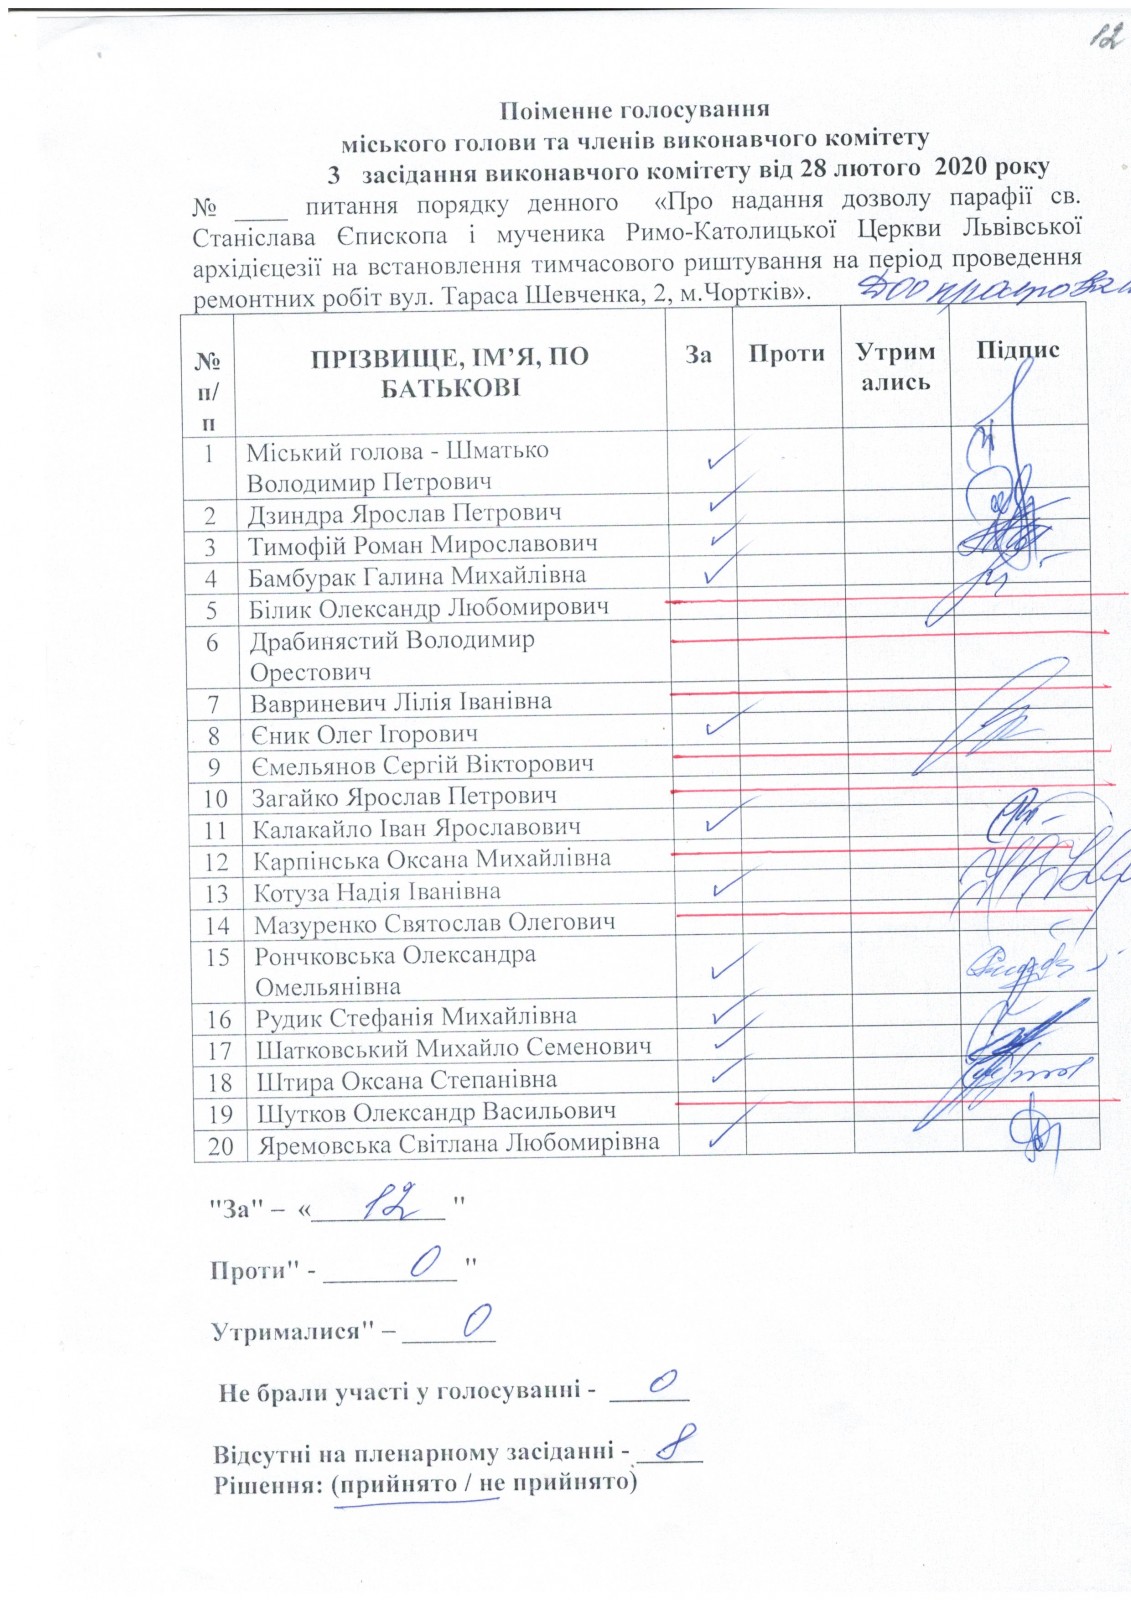 12
Поіменне голосування
міського голови та членів виконавчого комітету
3 засідання виконавчого комітету від 28 лютого 2020 року
№ ____ питання порядку денного «Про надання дозволу парафії св.
Станіслава Єпископа і мученика Римо-Католицької Церкви Львівської
архідієцезії на встановлення тимчасового риштування на період проведення
ремонтних робіт вул. Тараса Шевченка, 2, м.Чортків».
№ п/п ПРІЗВИЩЕ, ІМ’Я, ПО БАТЬКОВІ За Проти Утримались Підпис
1 Міський голова - Шматько
Володимир Петрович
2 Дзиндра Ярослав Петрович
3 Тимофій Роман Мирославович
4 Бамбурак Галина Михайлівна
5 Білик Олександр Любомирович
6 Драбинястий Володимир
Орестович
7 Вавриневич Лілія Іванівна
8 Єник Олег Ігорович
9 Ємельянов Сергій Вікторович
10 Загайко Ярослав Петрович
11 Калакайло Іван Ярославович
12 Карпінська Оксана Михайлівна
13 Котуза Надія Іванівна
14 Мазуренко Святослав Олегович
15 Рончковська Олександра
Омельянівна
16 Рудик Стефанія Михайлівна
17 Шатковський Михайло Семенович
18 Штира Оксана Степанівна
19 Шутков Олександр Васильович
20 Яремовська Світлана Любомирівна
"За" – «12 "
Проти" - 0 "
Утрималися" – 0
Не брали участі у голосуванні - 0
Відсутні на пленарному засіданні - 8
Рішення: (прийнято / не прийнято)